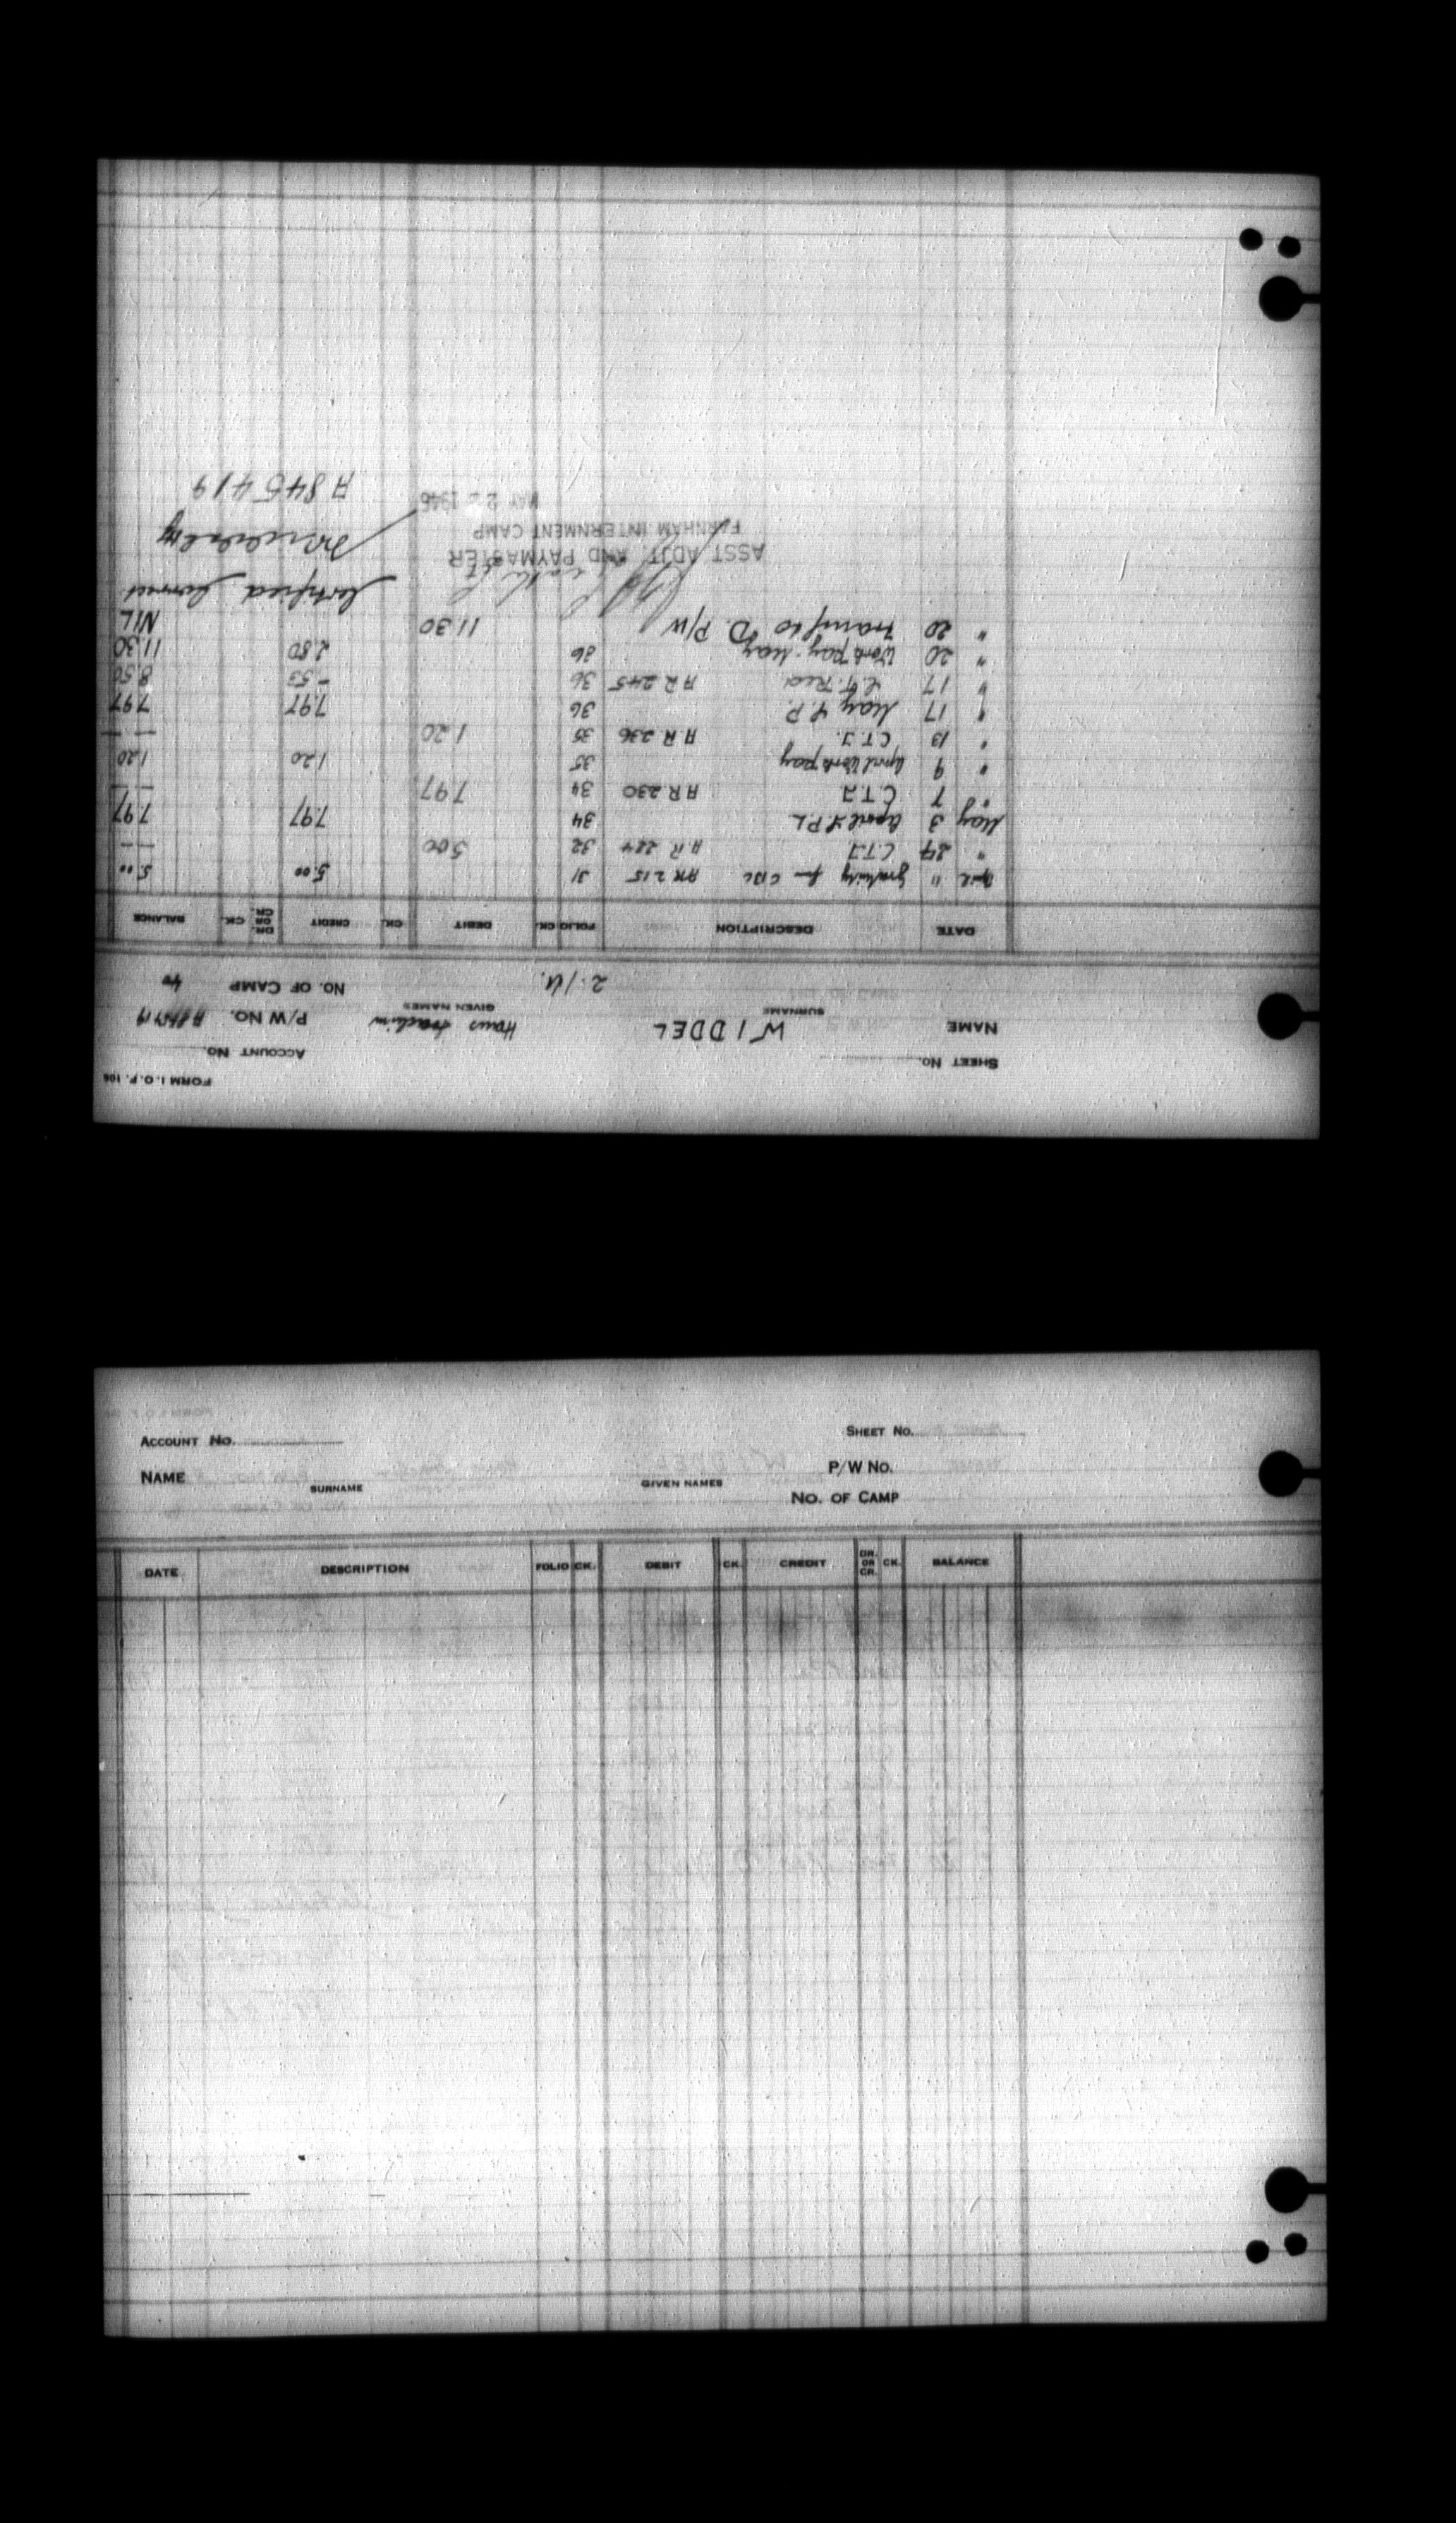 FORM I.O.F. 106
SHEET No. ACCOUNT No.
NAME WIDDEL Hans Joachim P/W No. A845419
SURNAME GIVEN NAMES
2./Lt. NO. OF CAMP 40
DATE DESCRIPTION FOLIO CK. DEBIT CK. CREDIT DR. OR CR. CK. BALANCE
April 11 gratuity fm AR 215 31 5.00 5.00
" 24 C.T.I AR 224 32 5.00 —
May 3 April L.P.L 34 7.97 7.97
" 7 C.T.I AR 230 34 7.97 —
" 9 April Work Pay 35 1.20 1.20
" 13 C.T.I. AR 236 35 1.20 —
" 17 May L.P. 36 7.97 7.97
" 17 AR 245 36 -.53 8.50
" 20 Work Pay. May 36 2.80 11.30
" 20 Transf to D. P/W 11.30 NIL
Certified Correct
ASST ADJT. AND PAYMASTER
FARNHAM INTERNMENT CAMP
MAY 2 1946
A 845419
ACCOUNT No. SHEET No.
NAME SURNAME GIVEN NAMES P/W No.
No. OF CAMP
DATE DESCRIPTION FOLIO CK. DEBIT CK. CREDIT DR. OR CR. CK. BALANCE